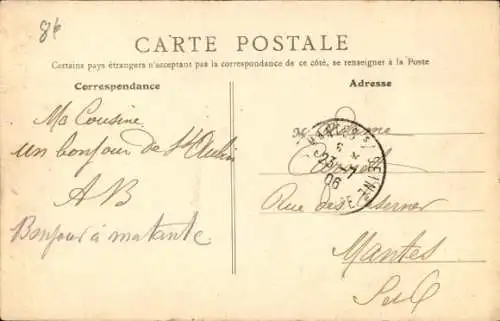 86
CARTE POSTALE
Certains pays étrangers n'acceptant pas la correspondance de ce côté, se renseigner à la Poste
Correspondance
Adresse
Ma Cousine
un bonjour de St Aubin
AB
Bonjour à ma tante
Rue des
Mantes
S et O
23 -7
06
SEINE